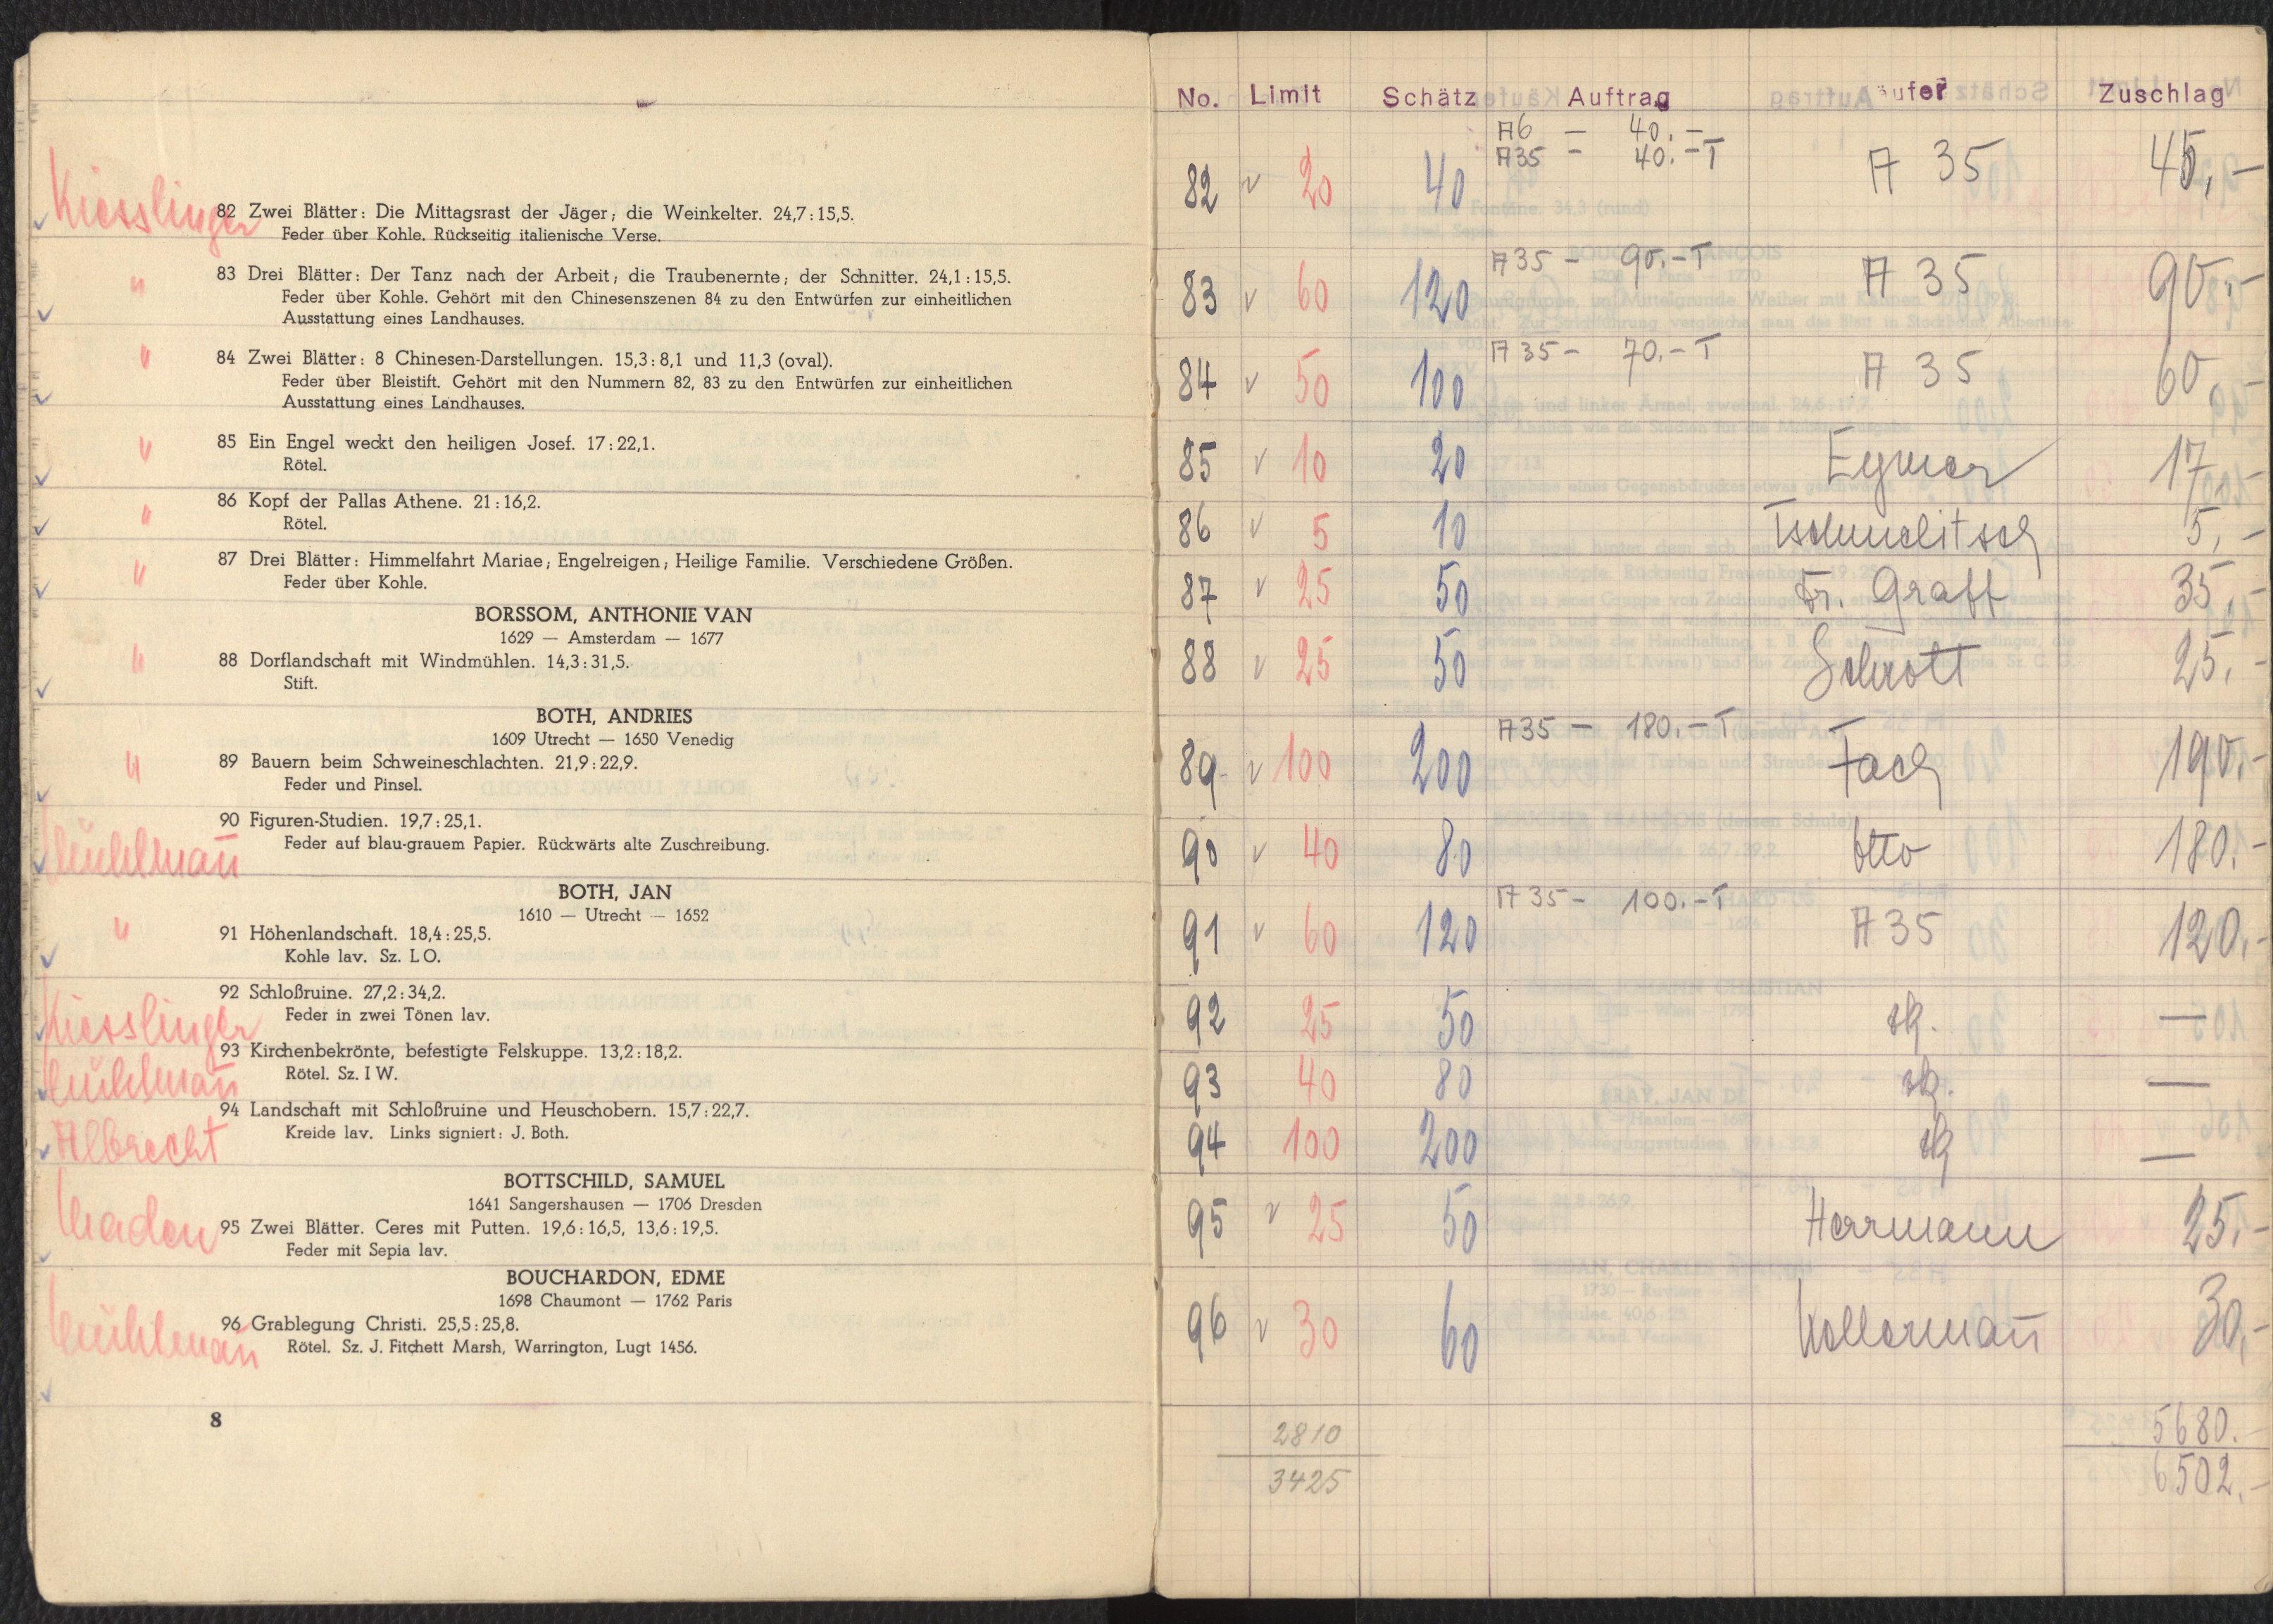 Kiesslinger
82 Zwei Blätter: Die Mittagsrast der Jäger; die Weinkelter. 24,7:15,5.
Feder über Kohle. Rückseitig italienische Verse.
" 83 Drei Blätter: Der Tanz nach der Arbeit; die Traubenernte; der Schnitter. 24,1:15,5.
Feder über Kohle. Gehört mit den Chinesenszenen 84 zu den Entwürfen zur einheitlichen
Ausstattung eines Landhauses.
" 84 Zwei Blätter: 8 Chinesen-Darstellungen. 15,3:8,1 und 11,3 (oval).
Feder über Bleistift. Gehört mit den Nummern 82, 83 zu den Entwürfen zur einheitlichen
Ausstattung eines Landhauses.
" 85 Ein Engel weckt den heiligen Josef. 17:22,1.
Rötel.
" 86 Kopf der Pallas Athene. 21:16,2.
Rötel.
" 87 Drei Blätter: Himmelfahrt Mariae; Engelreigen; Heilige Familie. Verschiedene Größen.
Feder über Kohle.
BORSSOM, ANTHONIE VAN
1629 — Amsterdam — 1677
" 88 Dorflandschaft mit Windmühlen. 14,3:31,5.
Stift.
BOTH, ANDRIES
1609 Utrecht — 1650 Venedig
" 89 Bauern beim Schweineschlachten. 21,9:22,9.
Feder und Pinsel.
90 Figuren-Studien. 19,7:25,1.
Feder auf blau-grauem Papier. Rückwärts alte Zuschreibung.
BOTH, JAN
1610 — Utrecht — 1652
" 91 Höhenlandschaft. 18,4:25,5.
Kohle lav. Sz. LO.
92 Schloßruine. 27,2:34,2.
Kiesslinger Feder in zwei Tönen lav.
93 Kirchenbekrönte, befestigte Felskuppe. 13,2:18,2.
Rötel. Sz. I W.
94 Landschaft mit Schloßruine und Heuschobern. 15,7:22,7.
Albrecht Kreide lav. Links signiert: J. Both.
BOTTSCHILD, SAMUEL
1641 Sangershausen — 1706 Dresden
95 Zwei Blätter. Ceres mit Putten. 19,6:16,5, 13,6:19,5.
Feder mit Sepia lav.
BOUCHARDON, EDME
1698 Chaumont — 1762 Paris
96 Grablegung Christi. 25,5:25,8.
Rötel. Sz. J. Fitchett Marsh, Warrington, Lugt 1456.
8
No. Limit Schätz Auftrag äufer Zuschlag
A6 — 40.—
A35 — 40.—T
82 v 20 40 A 35 45,—
A35 — 90.—T
83 v 60 120 A 35 90,—
A35 — 70.—T
84 v 50 100 A 35 60,—
85 v 10 20 17,—
86 v 5 10 5,—
87 v 25 50 Dr. Graff 35,—
88 v 25 50 Schrott 25,—
A35 — 180.—T
89 v 100 200 Fach 190.—
90 v 40 80 Otto 180.—
A35 — 100.—T
91 v 60 120 A 35 120.—
92 25 50 —
93 40 80 —
94 100 200 —
95 v 25 50 Herrmann 25.—
96 v 30 60 Kellermañ 30,—
2810 5680.—
3425 6502.—